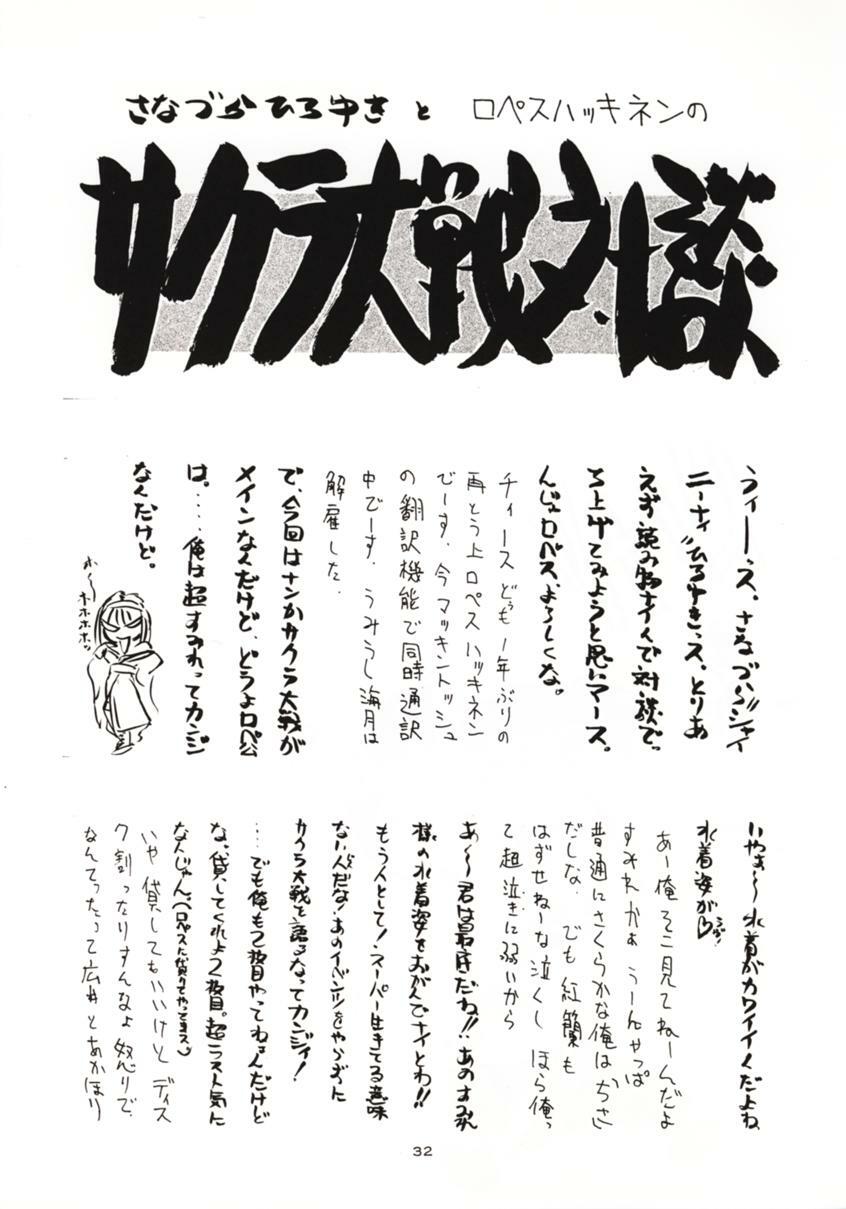 さなづらひろゆきと ロペスハッキネンの
サクラ大戦対談
うぃーっス。さなづら"ジャイ
ニーナィ"ひろゆきっス。とりあ
えず読み物ナイんで対談でっ
ち上げてみようと思いマース。
んじゃロペス、よろしくな。
チィース どぅも1年ぶりの
再とう上ロペスハッキネン
でーす。今マッキントッシュ
の翻訳機能で同時通訳
中でーす。うみうし海月は
解雇した.
で、今回はナンかサクラ大戦が
メインなんだけど、どうよロペ公
は。‥‥俺は超すみれってカンジ
なんだけど。
ホ〜ホホホホッ
いやぁ〜水着がカワイイんだよね、
水着姿が♡
あー俺そこ見てねーんだよ
すみれかぁ うーんやっぱ
普通にさくらかな俺は、ちさ
だしな. でも紅蘭も
はずせねーな泣くし ほら俺っ
て超泣きに弱いから
あ〜〜君は最低だね!!あのすみれ
様の水着姿をおがんでナイとわ!!
もう人として!スーパー生きてる意味
ないんだな!あのイベンツをやらずに
サクラ大戦を語るなってカンジィ!
…でも俺もう2枚目やってねェんだけど
な。貸してくれよ2枚目。超ラスト気に
なんじゃん。(ロペスに貸りてやってまス。)
いや 貸してもいいけど ディス
ク割ったりすんなよ 怒りで.
なんてったって広井とあかほり
32